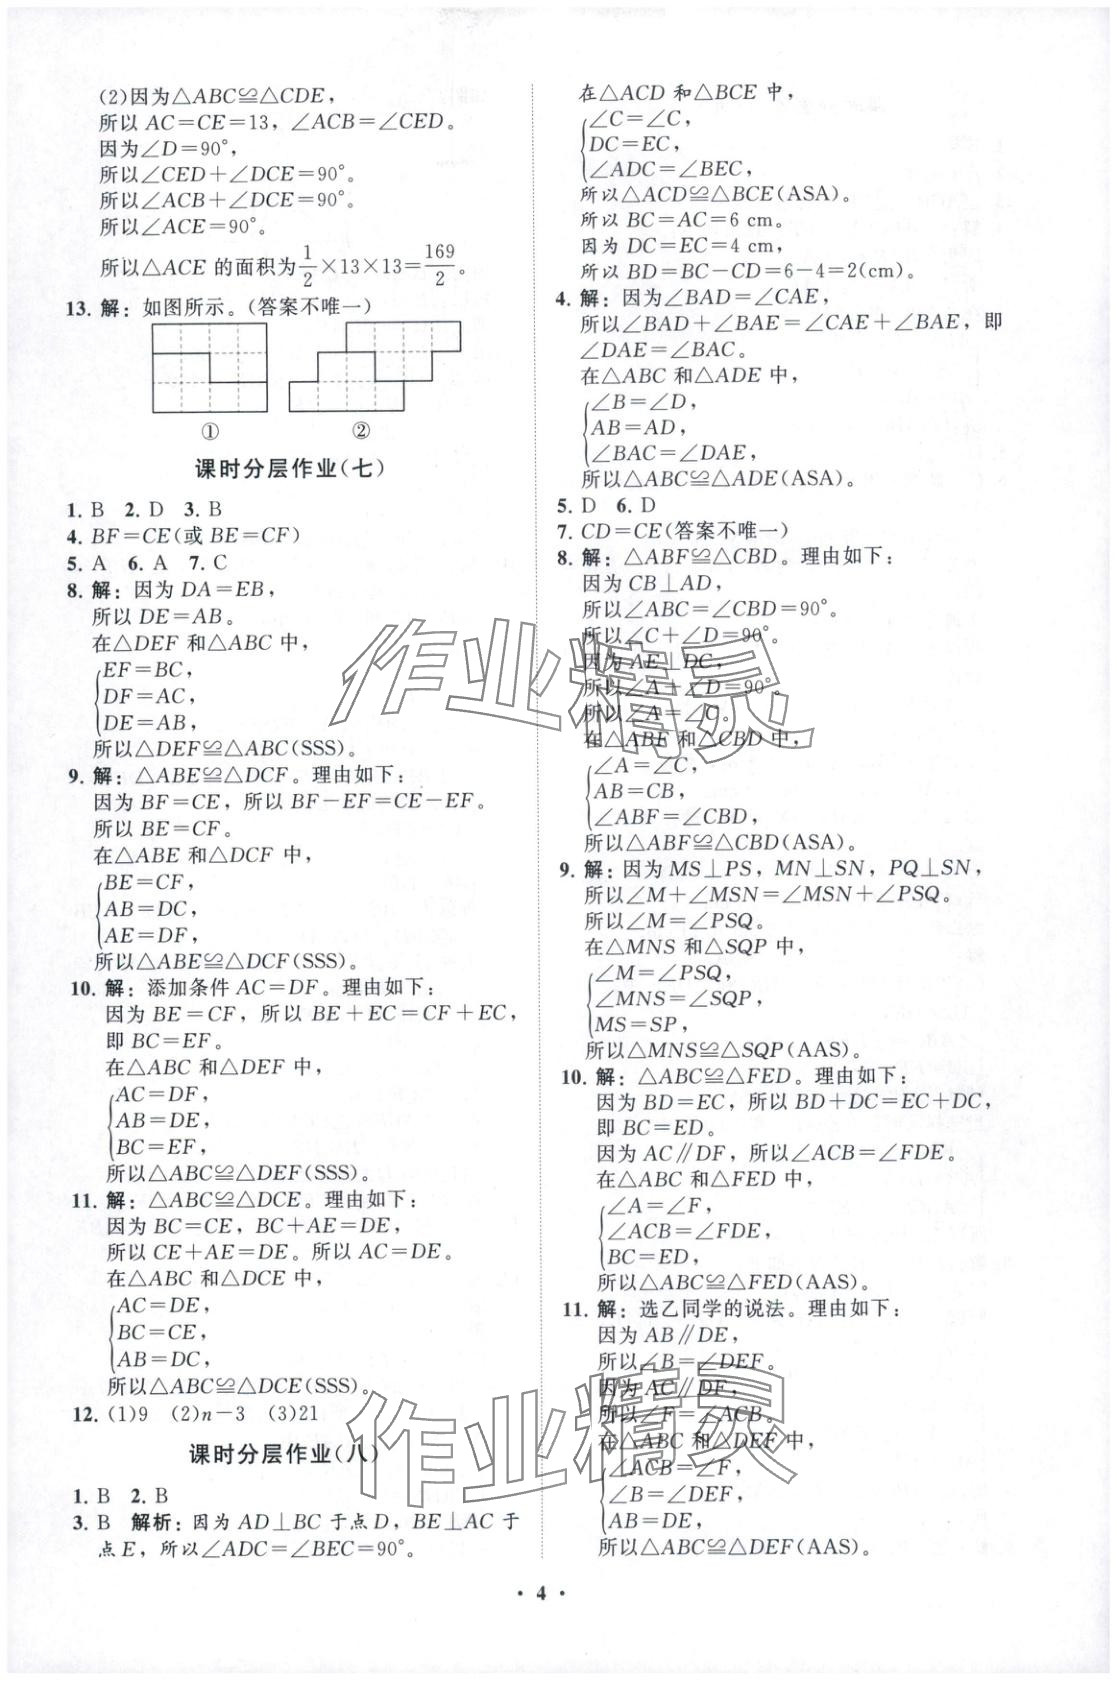 (2)因为△ABC≌△CDE，
所以 AC＝CE＝13，∠ACB＝∠CED。
因为∠D＝90°，
所以∠CED＋∠DCE＝90°。
所以∠ACB＋∠DCE＝90°。
所以∠ACE＝90°。
所以△ACE 的面积为1/2×13×13＝169/2。
13. 解：如图所示。(答案不唯一)
① ②
课时分层作业(七)
1. B 2. D 3. B
4. BF＝CE(或 BE＝CF)
5. A 6. A 7. C
8. 解：因为 DA＝EB，
所以 DE＝AB。
在△DEF 和△ABC 中，
EF＝BC，
DF＝AC，
DE＝AB，
所以△DEF≌△ABC(SSS)。
9. 解：△ABE≌△DCF。理由如下：
因为 BF＝CE，所以 BF－EF＝CE－EF。
所以 BE＝CF。
在△ABE 和△DCF 中，
BE＝CF，
AB＝DC，
AE＝DF，
所以△ABE≌△DCF(SSS)。
10. 解：添加条件 AC＝DF。理由如下：
因为 BE＝CF，所以 BE＋EC＝CF＋EC，
即 BC＝EF。
在△ABC 和△DEF 中，
AC＝DF，
AB＝DE，
BC＝EF，
所以△ABC≌△DEF(SSS)。
11. 解：△ABC≌△DCE。理由如下：
因为 BC＝CE，BC＋AE＝DE，
所以 CE＋AE＝DE。所以 AC＝DE。
在△ABC 和△DCE 中，
AC＝DE，
BC＝CE，
AB＝DC，
所以△ABC≌△DCE(SSS)。
12. (1)9 (2)n－3 (3)21
课时分层作业(八)
1. B 2. B
3. B 解析：因为 AD⊥BC 于点 D，BE⊥AC 于
点 E，所以∠ADC＝∠BEC＝90°。
在△ACD 和△BCE 中，
∠C＝∠C，
DC＝EC，
∠ADC＝∠BEC，
所以△ACD≌△BCE(ASA)。
所以 BC＝AC＝6 cm。
因为 DC＝EC＝4 cm，
所以 BD＝BC－CD＝6－4＝2(cm)。
4. 解：因为∠BAD＝∠CAE，
所以∠BAD＋∠BAE＝∠CAE＋∠BAE，即
∠DAE＝∠BAC。
在△ABC 和△ADE 中，
∠B＝∠D，
AB＝AD，
∠BAC＝∠DAE，
所以△ABC≌△ADE(ASA)。
5. D 6. D
7. CD＝CE(答案不唯一)
8. 解：△ABF≌△CBD。理由如下：
因为 CB⊥AD，
所以∠ABC＝∠CBD＝90°。
所以∠C＋∠D＝90°。
因为 AE⊥DC，
所以∠A＋∠D＝90°。
所以∠A＝∠C。
在△ABF 和△CBD 中，
∠A＝∠C，
AB＝CB，
∠ABF＝∠CBD，
所以△ABF≌△CBD(ASA)。
9. 解：因为 MS⊥PS，MN⊥SN，PQ⊥SN，
所以∠M＋∠MSN＝∠MSN＋∠PSQ。
所以∠M＝∠PSQ。
在△MNS 和△SQP 中，
∠M＝∠PSQ，
∠MNS＝∠SQP，
MS＝SP，
所以△MNS≌△SQP(AAS)。
10. 解：△ABC≌△FED。理由如下：
因为 BD＝EC，所以 BD＋DC＝EC＋DC，
即 BC＝ED。
因为 AC∥DF，所以∠ACB＝∠FDE。
在△ABC 和△FED 中，
∠A＝∠F，
∠ACB＝∠FDE，
BC＝ED，
所以△ABC≌△FED(AAS)。
11. 解：选乙同学的说法。理由如下：
因为 AB∥DE，
所以∠B＝∠DEF。
因为 AC∥DF，
所以∠F＝∠ACB。
在△ABC 和△DEF 中，
∠ACB＝∠F，
∠B＝∠DEF，
AB＝DE，
所以△ABC≌△DEF(AAS)。
• 4 •
作业精灵
作业精灵